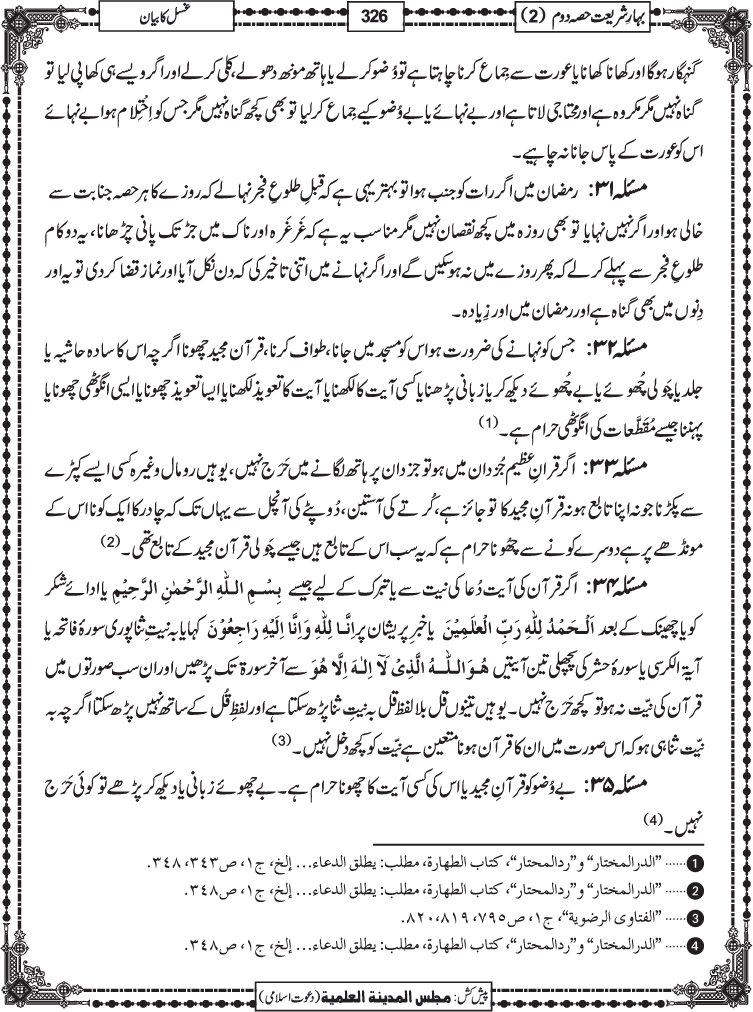 بہارِ شریعت حصہ دوم (2)
326
غسل کا بیان
گنہگار ہوگا اور کھانا کھانا یا عورت سے جِماع کرنا چاہتا ہے تو وُضو کرلے یا ہاتھ مونھ دھولے، کلی کرلے اور اگر ویسے ہی کھا پی لیا تو
گناہ نہیں مگر مکروہ ہے اور محتاجی لاتا ہے اور بے نہائے یا بے وُضو کیے جِماع کرلیا تو بھی کچھ گناہ نہیں مگر جس کو اِحْتِلام ہوا بے نہائے
اس کو عورت کے پاس جانا نہ چاہیے۔
مسئلہ ۳۱: رمضان میں اگر رات کو جنب ہوا تو بہتر یہی ہے کہ قبلِ طلوعِ فجر نہالے کہ روزے کا ہر حصہ جنابت سے
خالی ہو اور اگر نہیں نہایا تو بھی روزہ میں کچھ نقصان نہیں مگر مناسب یہ ہے کہ غَرغَرہ اور ناک میں جڑ تک پانی چڑھانا، یہ دو کام
طلوعِ فجر سے پہلے کرلے کہ پھر روزے میں نہ ہوسکیں گے اور اگر نہانے میں اتنی تاخیر کی کہ دن نکل آیا اور نماز قضا کردی تو یہ اور
دِنوں میں بھی گناہ ہے اور رمضان میں اور زِیادہ۔
مسئلہ ۳۲: جس کو نہانے کی ضرورت ہو اس کو مسجد میں جانا، طواف کرنا، قرآن مجید چھونا اگرچہ اس کا سادہ حاشیہ یا
جلد یا چَولی چُھوئے یا بے چُھوئے دیکھ کر یا زبانی پڑھنا یا کسی آیت کا لکھنا یا آیت کا تعویذ لکھنا یا ایسا تعویذ چھونا یا ایسی انگوٹھی چھونا یا
پہننا جیسے مُقَطَّعات کی انگوٹھی حرام ہے۔ (1)
مسئلہ ۳۳: اگر قرانِ عظیم جُزدان میں ہو تو جزدان پر ہاتھ لگانے میں حَرَج نہیں، یوہیں رومال وغیرہ کسی ایسے کپڑے
سے پکڑنا جو نہ اپنا تابع ہو نہ قرآنِ مجید کا تو جائز ہے، کُرتے کی آستین، دُوپٹے کی آنچل سے یہاں تک کہ چادر کا ایک کونا اس کے
مونڈھے پر ہے دوسرے کونے سے چھُونا حرام ہے کہ یہ سب اس کے تابع ہیں جیسے چَولی قرآن مجید کے تابع تھی۔ (2)
مسئلہ ۳۴: اگر قرآن کی آیت دُعا کی نیت سے یا تبرک کے لیے جیسے بِسْمِ اللّٰہِ الرَّحْمٰنِ الرَّحِیْمِ یا ادائے شکر
کو یا چھینک کے بعد اَلْحَمْدُ لِلّٰہِ رَبِّ الْعٰلَمِیْنَ یا خبرِ پریشان پر اِنَّا لِلّٰہِ وَاِنَّا اِلَیْہِ رَاجِعُوْنَ کہا یا بہ نیتِ ثنا پوری سورۂ فاتحہ یا
آیۃ الکرسی یا سورۂ حشر کی پچھلی تین آیتیں ھُوَ اللّٰہُ الَّذِیْ لَآ اِلٰہَ اِلَّا ھُوَ سے آخر سورۃ تک پڑھیں اور ان سب صورتوں میں
قرآن کی نیّت نہ ہو تو کچھ حَرَج نہیں۔ یوہیں تینوں قل بلا لفظِ قل بہ نیتِ ثنا پڑھ سکتا ہے اور لفظِ قُل کے ساتھ نہیں پڑھ سکتا اگرچہ بہ
نیّت ثنا ہی ہو کہ اس صورت میں ان کا قرآن ہونا متعین ہے نیّت کو کچھ دخل نہیں۔ (3)
مسئلہ ۳۵: بے وُضو کو قرآنِ مجید یا اس کی کسی آیت کا چھونا حرام ہے۔ بے چھوئے زبانی یا دیکھ کر پڑھے تو کوئی حَرَج
نہیں۔ (4)
1 ...... ”الدرالمختار“ و ”ردالمحتار“، کتاب الطھارۃ، مطلب: یطلق الدعاء... إلخ، ج۱، ص۳۴۳، ۳۴۸.
2 ...... ”الدرالمختار“ و ”ردالمحتار“، کتاب الطھارۃ، مطلب: یطلق الدعاء... إلخ، ج۱، ص۳۴۸.
3 ...... ”الفتاوی الرضویة“، ج۱، ص۷۹۵، ۸۱۹، ۸۲۰.
4 ...... ”الدرالمختار“ و ”ردالمحتار“، کتاب الطھارۃ، مطلب: یطلق الدعاء... إلخ، ج۱، ص۳۴۸.
پیش کش: مجلس المدینة العلمیة (دعوت اسلامی)